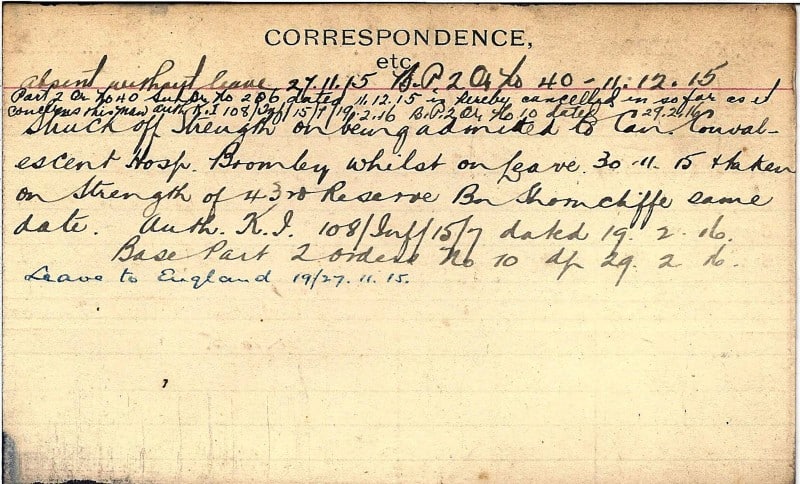 CORRESPONDENCE,
etc
Absent without leave 27.11.15 B.P 2 Or No 40 - 11.12.15
Part 2 Or No 40 Sub Or No 286 dated 11.12.15 is hereby cancelled in so far as it
concerns this man Auth K.I 108/Inf/15/7/19.2.16 B.P.2 Or No 10 dated 29.2.16
Struck off Strength on being admitted to Can. Conval-
escent Hosp. Bromley whilst on Leave. 30-11-15 & taken
on Strength of 43rd Reserve Bn Shorncliffe same
date. Auth. K.I. 108/Inf/15/7 dated 19.2.16.
Base Part 2 orders No 10 d/ 29.2.16.
Leave to England 19/27.11.15.